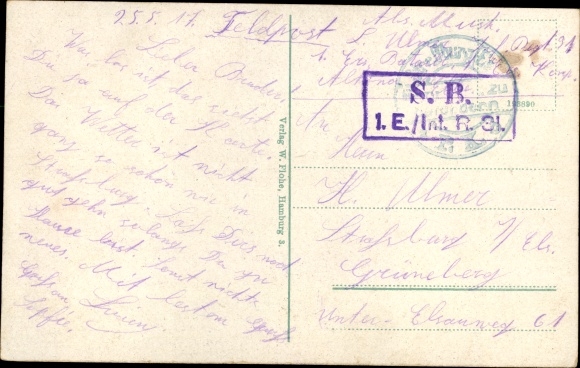 25.5.17. Feldpost
Lieber Bruder,
Was los ist das siehst
Du ja auf der Karte.
Das Wetter ist nicht
ganz so schön wie in
Straßburg. Laß Dirs noch
gut gehn solange Du zu
Hause bist. Sonst nichts
neues. Mit bestem Gruß
Gruß an
Verlag W. Flohe, Hamburg 3.
Abs. Musk.
L. Ulmer Inf. Regt. 31
1. Ers. Batail. Komp.
Altona
S. B.
1. E./Inf. R. 31.
An
Herrn
H. Ulmer
Straßburg i/ Els.
Grüneberg
Unter- Elsauweg 61